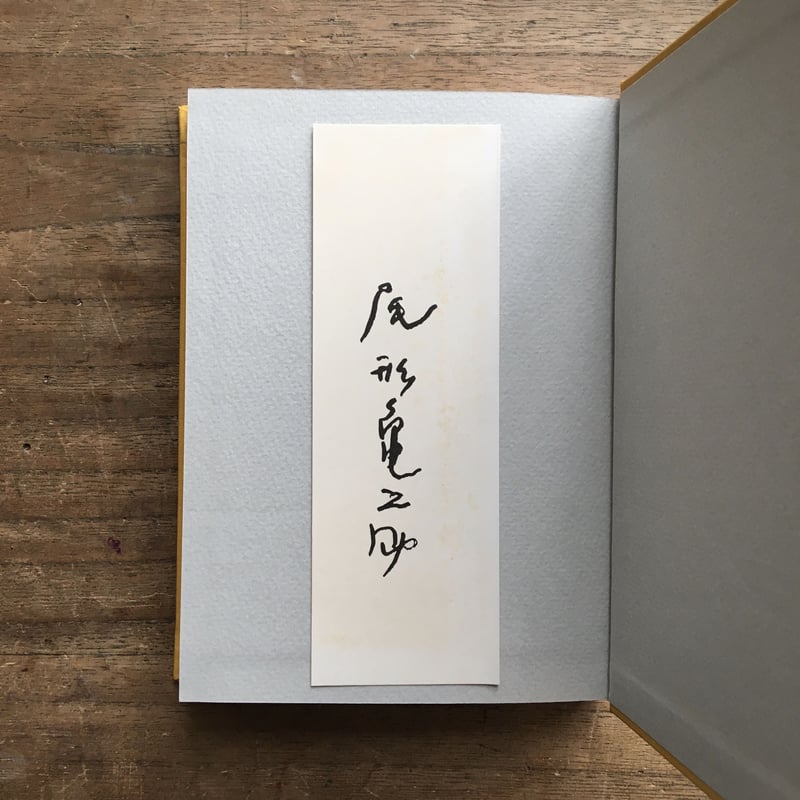 尾形亀之助